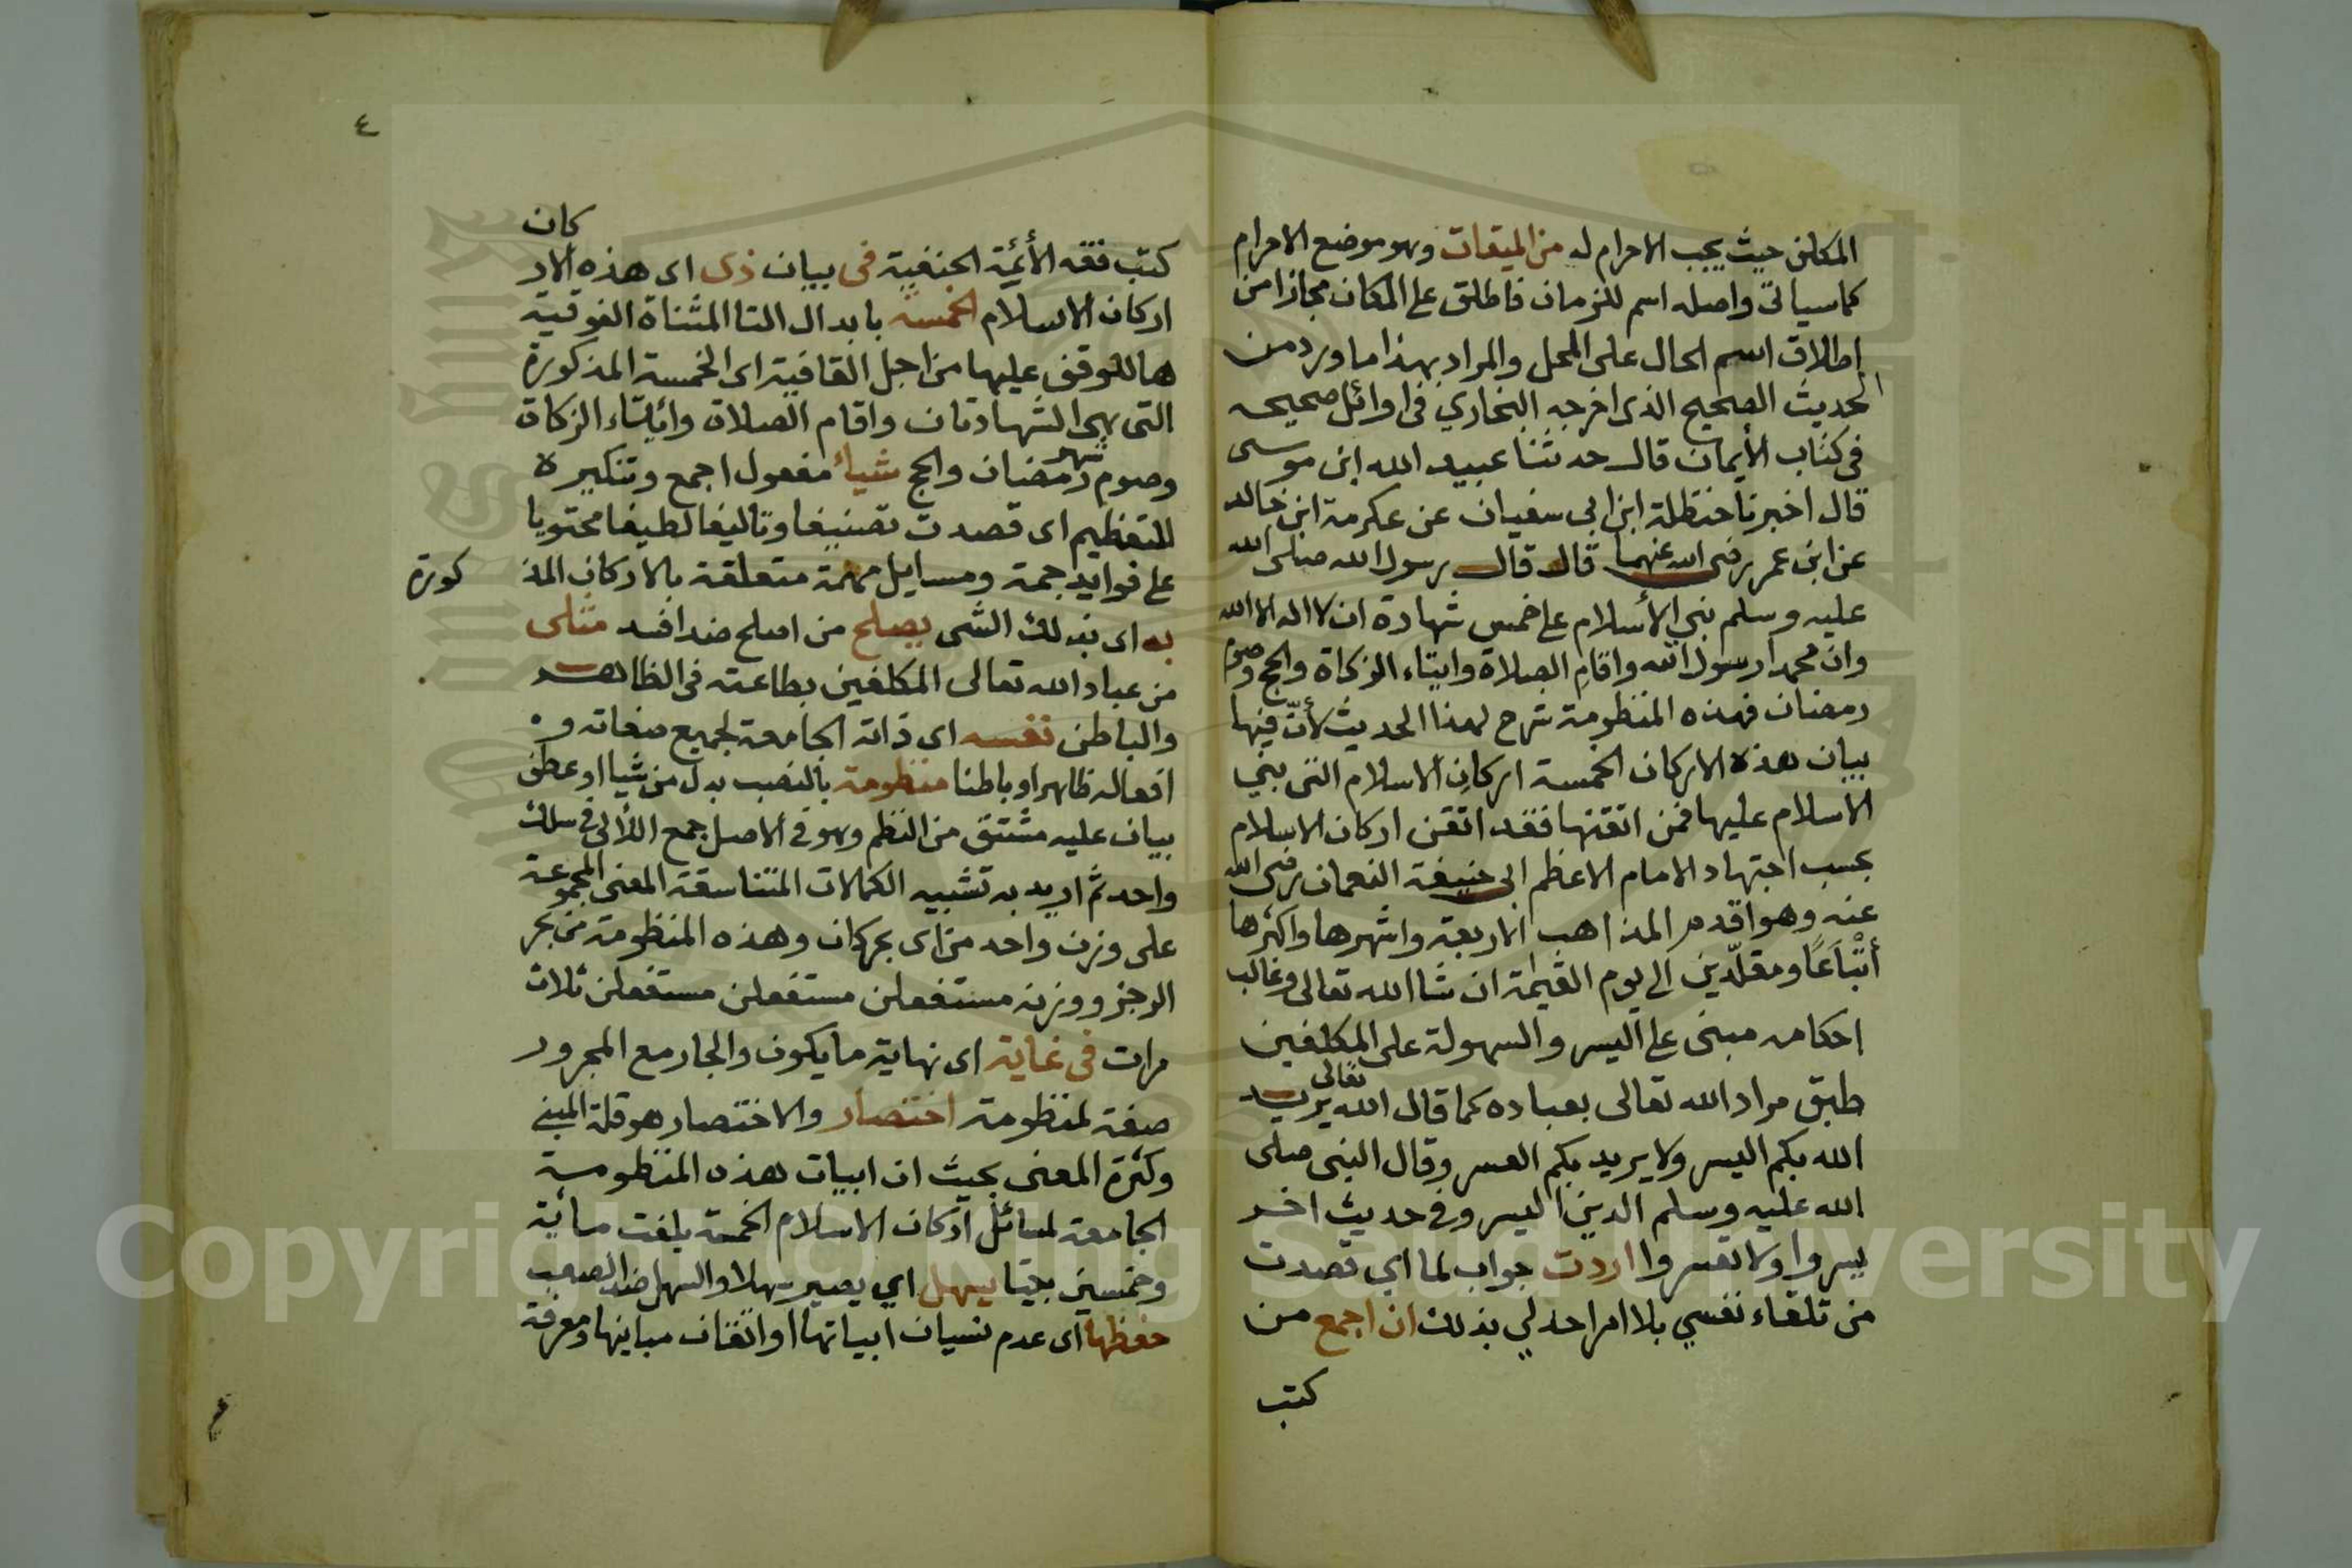 المكلف حيث يجب الاحرام له من الميقات وهو موضع الاحرام
كما سياتي واصله اسم للزمان فاطلق على المكان مجازا من
اطلاق اسم الحال على المحل والمراد بهذا ما ورد من
الحديث الصحيح الذى اخرجه البخاري في اوائل صحيحه
في كتاب الأيمان قال حدثنا عبيد الله ابن موسى
قال اخبرنا حنظلة ابن ابي سفيان عن عكرمة ابن خالد
عن ابن عمر رضى الله عنهما قال قال رسول الله صلى الله
عليه وسلم بني الأسلام على خمس شهادة ان لا اله الا الله
وان محمدا رسول الله واقام الصلاة وايتاء الزكاة والحج وصوم
رمضان فهذه المنظومة شرح لهذا الحديث لأنّ فيها
بيان هذه الاركان الخمسة اركان الاسلام التى بني
الاسلام عليها فمن اتقنها فقد اتقن اركان الاسلام
بحسب اجتهاد الامام الاعظم ابى حنيفة النعمان رضى الله
عنه وهو اقدم المذاهب الاربعة واشهرها واكثرها
أتْبَاعًا ومقلّدين الى يوم القيمة ان شا الله تعالى وغالب
احكامه مبنى على اليسر والسهولة على المكلفين
طبق مراد الله تعالى بعباده كما قال الله تعالى يريد
الله بكم اليسر ولا يريد بكم العسر وقال النبى صلى
الله عليه وسلم الدين اليسر وفى حديث اخر
يسروا ولا تعسروا اردت جواب لما اي قصدت
من تلقاء نفسي بلا امر احد لي بذلك ان اجمع من
كتب
٤
كتب فقه الأئمة الحنفية فى بيان ذى اى هذه الاركان
اركان الاسلام الخمسه بابدال التا المثناة الفوقية
ها للوقف عليها من اجل القافية اى الخمسة المذكورة
التى هى الشهادتان واقام الصلاة وايتاء الزكاة
وصوم شهر رمضان والحج شيأ مفعول اجمع وتنكيره
للتعظيم اى قصدت تصنيفا وتاليفا لطيفا محتويا
على فوايد جمة ومسايل مهمة متعلقة بالاركان المذكورة
به اى بذلك الشى يصلح من اصلح ضد افسد مثلى
من عباد الله تعالى المكلفين بطاعته فى الظاهر
والباطن نفسه اى ذاته الجامعة لجميع صفاته و
افعاله ظاهرا وباطنا منظومة بالنصب بدل من شيا او عطف
بيان عليه مشتق من النظم وهو في الاصل جمع اللألى في سلك
واحد ثم اريد به تشبيه الكمالات المتناسقة المعنى المجموعة
على وزن واحد من اى بحر كان وهذه المنظومة من بحر
الرجز ووزنه مستفعلن مستفعلن مستفعلن ثلاث
مرات فى غاية اى نهاية ما يكون والجار مع المجرور
صفة لمنظومة اختصار والاختصار هو قلة المبنى
وكثرة المعنى بحيث ان ابيات هذه المنظومة
الجامعة لمسائل اركان الاسلام الخمسة بلغت مائية
وخمسين بيتا يسهل اي يصير سهلا والسهل ضد الصعب
حفظها اى عدم نسيان ابياتها او اتقان مبانيها ومعرفة
Copyright © King Saud University